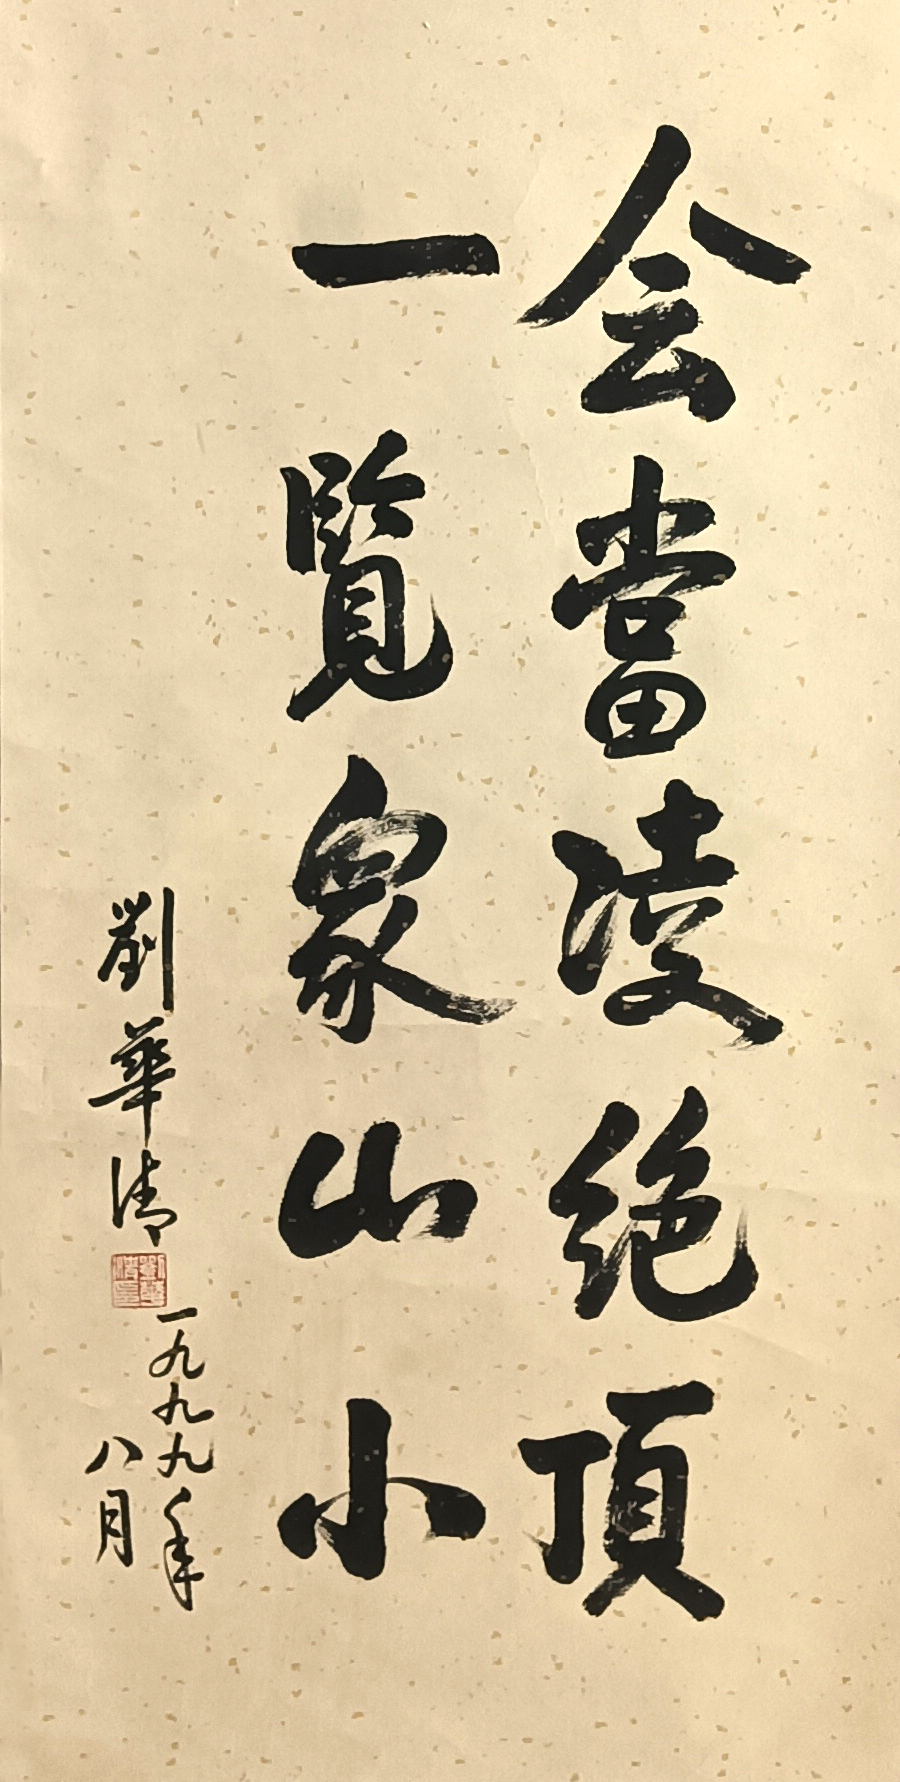 会當凌絶頂
一覽衆山小
劉華清
一九九九年
八月